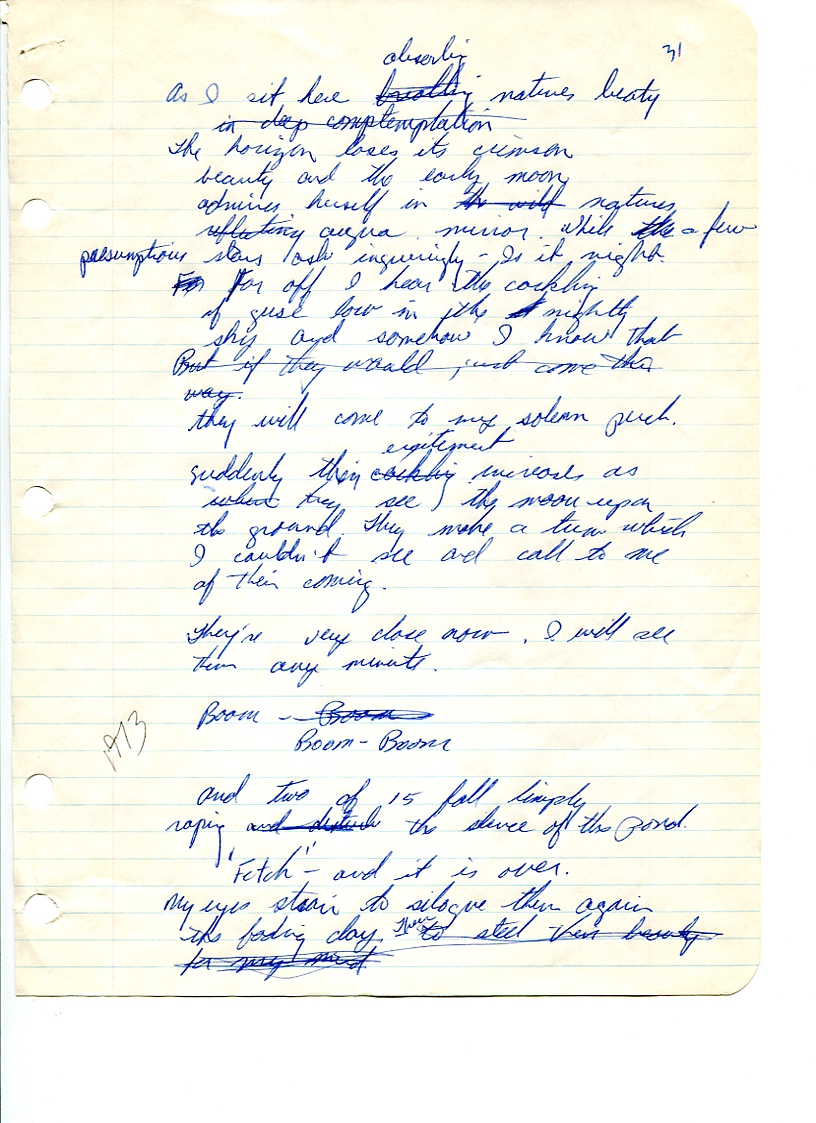 31
absorbin
As I sit here breathing natures beaty
in deep comptemptation
The horizon loses its crimson
beauty and the early moon
admires herself in the wild natures
reflecting acqua mirror. While the a few
presumptious stars ask inquiringly - Is it night.
For Far off I hear the cackling
of geese low in the nightly
sky and somehow I know that
But if they would just come this
way.
they will come to my solemn perch.
excitement
suddenly their cackling increases as
when they see the moon upon
the ground. They make a turn which
I couldn't see and call to me
of their coming.
They're very close now. I will see
them any minute.
Boom - Boom
Boom - Boom
1973
and two of 15 fall limply
raping and disturb the silence of the pond.
'Fetch' - and it is over.
My eyes strain to siloque them again
the fading day. to steel their beauty
for my mind